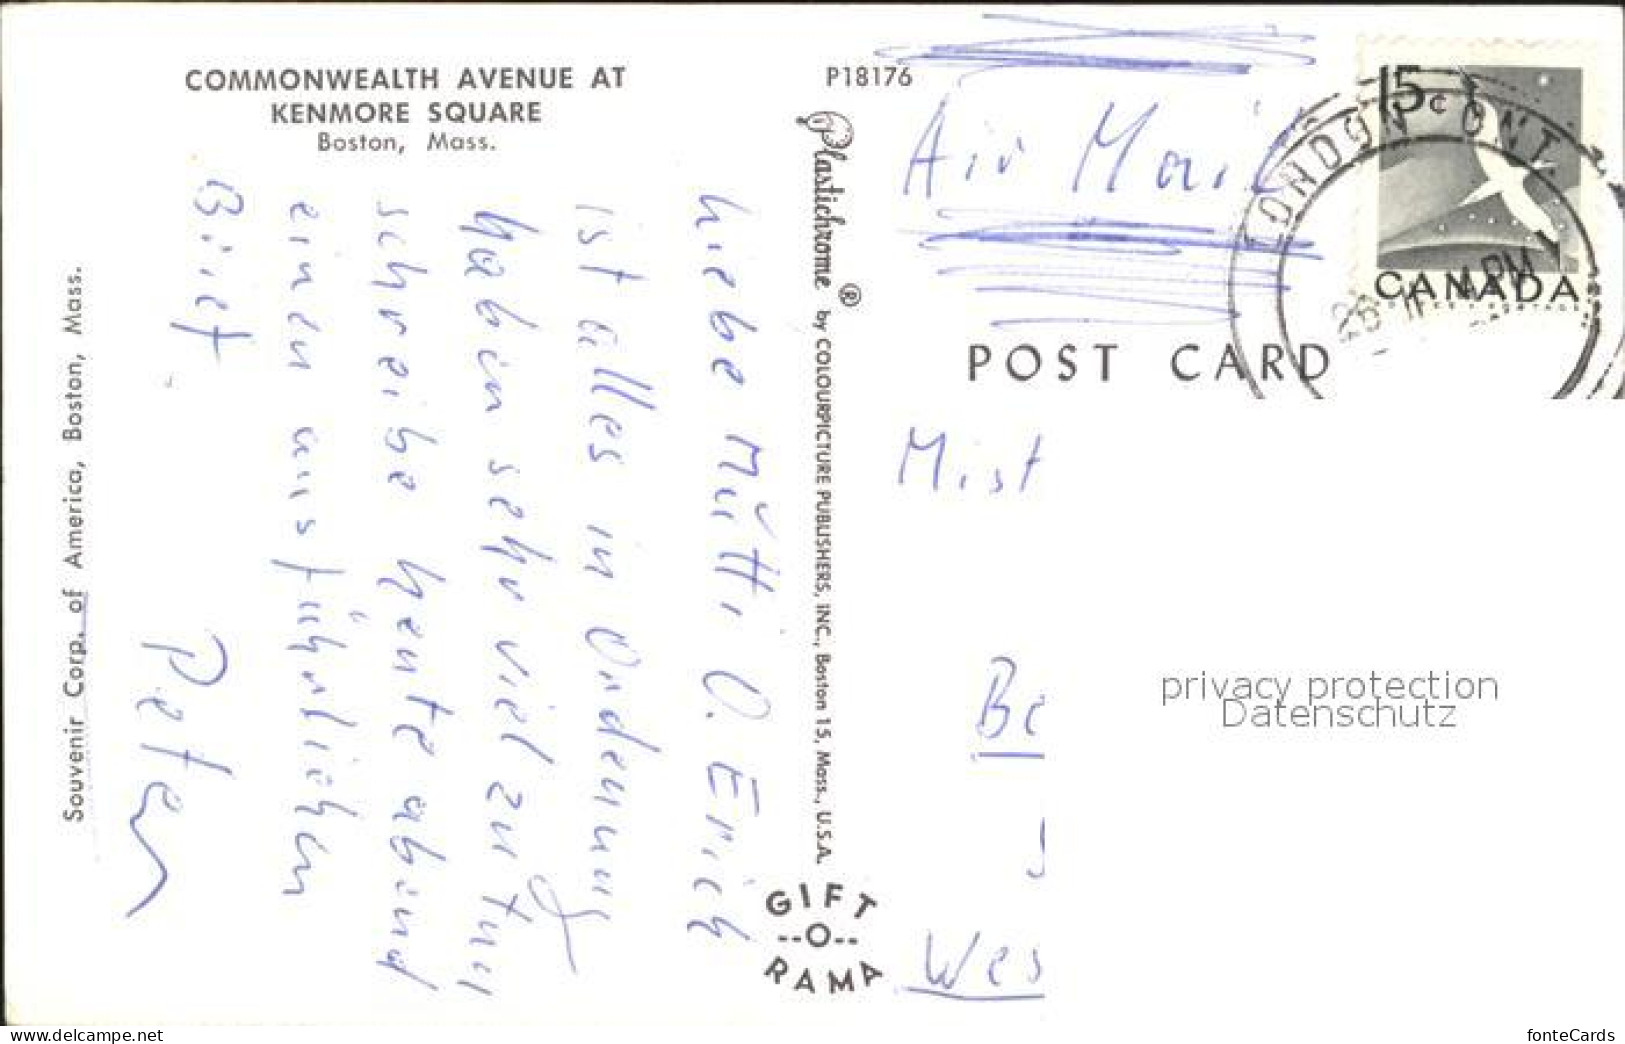 COMMONWEALTH AVENUE AT
KENMORE SQUARE
Boston, Mass.
P18176
Souvenir Corp. of America, Boston, Mass.
Liebe Mutti O. Erich
ist alles in Ordnung
habe sehr viel zu tun
schreibe heute abend
einen ausführlichen
Brief
Peter
Plastichrome ® by COLOURPICTURE PUBLISHERS, INC., Boston 15, Mass., U.S.A.
GIFT
--O--
RAMA
Air Mail
15c
CANADA
LONDON ONT.
PM
POST CARD
Mist
Be
Wes
privacy protection
Datenschutz
www.ansichtskartenversand.com
fonteCards